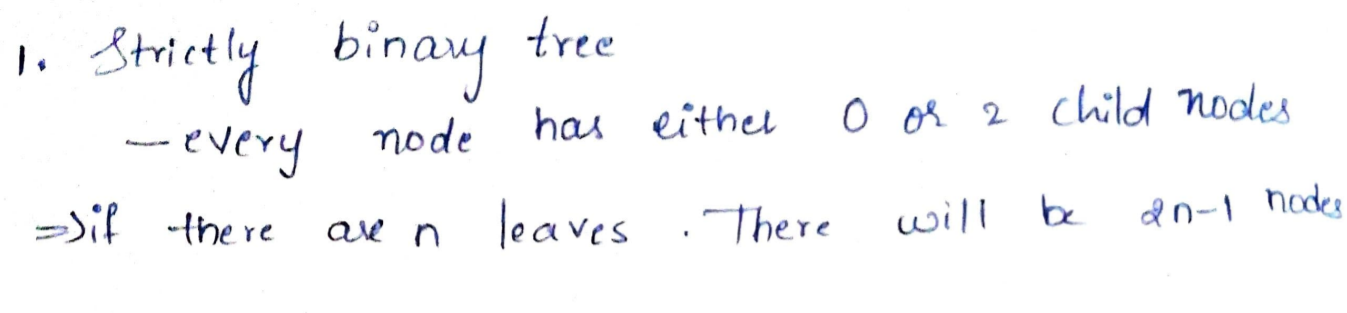 1. Strictly binary tree
— every node has either 0 or 2 child nodes
=> if there are n leaves . There will be 2n-1 nodes